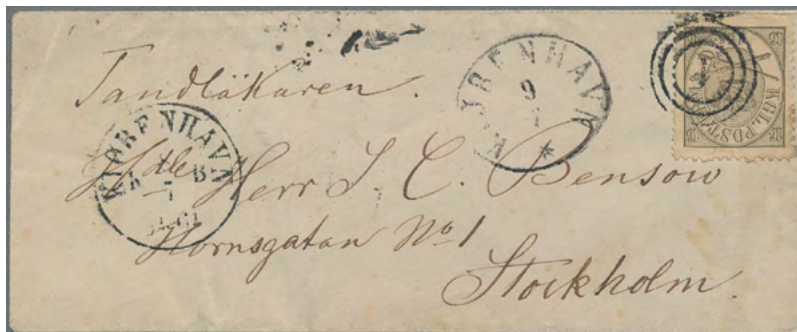 Tandläkaren.
KJØBENHAVN
9
1
KGL. POST
KIØBENHAVN
B
Herr J C. Bensow
Hornsgatan No 1
Stockholm.